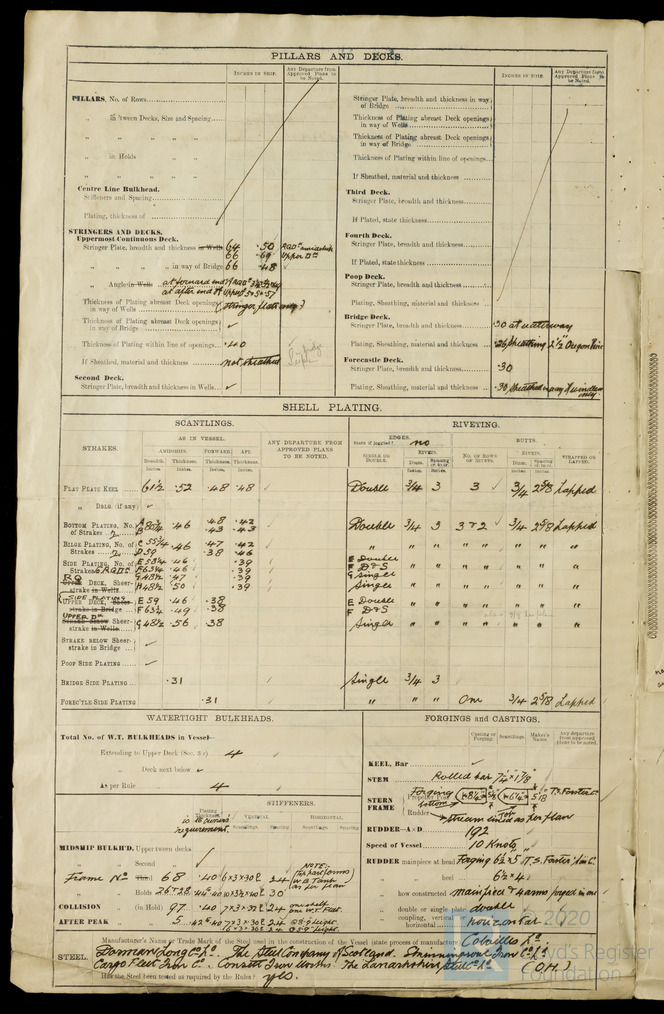 PILLARS AND DECKS.
INCHES IN SHIP.
Any Departure from Approved Plans to be Noted.
PILLARS, No. of Rows
" in 'tween Decks, Size and Spacing
" " " "
" in Holds " "
" " " "
Centre Line Bulkhead.
Stiffeners and Spacing
Plating, thickness of
STRINGERS AND DECKS.
Uppermost Continuous Deck.
Stringer Plate, breadth and thickness in Wells 64 .50
66 .69 Upper Dk
" " " in way of Bridge 66 .48
" Angle in Wells at forward end of RQDk
at after end of Upper
Thickness of Plating abreast Deck openings in way of Wells (Stringer plate only)
Thickness of Plating abreast Deck openings in way of Bridge ✓
Thickness of Plating within line of openings .40
If Sheathed, material and thickness not sheathed
Second Deck.
Stringer Plate, breadth and thickness in Wells ✓
INCHES IN SHIP.
Any Departure from Approved Plans to be Noted.
Stringer Plate, breadth and thickness in way of Bridge
Thickness of Plating abreast Deck openings in way of Wells
Thickness of Plating abreast Deck openings in way of Bridge
Thickness of Plating within line of openings
If Sheathed, material and thickness
Third Deck.
Stringer Plate, breadth and thickness
If Plated, state thickness
Fourth Deck.
Stringer Plate, breadth and thickness
If Plated, state thickness
Poop Deck.
Stringer Plate, breadth and thickness
Plating, Sheathing, material and thickness
Bridge Deck.
Stringer Plate, breadth and thickness .30 at waterway
Plating, Sheathing, material and thickness .26 Sheathing 2½ Oregon Pine
Forecastle Deck.
Stringer Plate, breadth and thickness .30
Plating, Sheathing, material and thickness .30 Sheathed in way of windlass only.
SHELL PLATING.
SCANTLINGS.
RIVETING.
STRAKES.
AS IN VESSEL.
AMIDSHIPS. FORWARD. AFT.
Breadth. Thickness. Thickness. Thickness.
Inches. Inches. Inches. Inches.
ANY DEPARTURE FROM APPROVED PLANS TO BE NOTED.
EDGES.
State if joggled? no
SINGLE OR DOUBLE.
RIVETS.
Diam. Spacing cr. to cr.
Inches. Inches.
BUTTS.
No. OF ROWS OF RIVETS.
RIVETS.
Diam. Spacing cr. to cr.
Inches. Inches.
STRAPPED OR LAPPED.
FLAT PLATE KEEL 61½ .52 .48 .48 ✓ Double 3/4 3 3 ✓ 3/4 2 5/8 Lapped
" DBLG. (if any) ✓
BOTTOM PLATING, No. of Strakes 2 .46 .48 .42 Double 3/4 3 3 & 2 3/4 2 5/8 Lapped
.43 .43
BILGE PLATING, No. of Strakes 2 .46 .47 .42 " " " " " " " "
D 59 .38 .46
SIDE PLATING, No. of Strakes E 53¼ .46 .39 E Double
F 63¼ .46 .39 F D&S " " " " " "
RQ DECK, Sheerstrake in Wells G 48½ .47 .39 G Single
A 48½ .50 .39 Single " " " " " "
SIDE PLATING
UPPER DECK, Sheerstrake in Bridge E 59 .46 .38 E Double
F 63½ .49 .38 F D&S " " " " " "
UPPER Dk
strake in Wells G 48½ .56 .38 Single " " " " " "
STRAKE BELOW Sheerstrake in Bridge ✓
POOP SIDE PLATING ✓
BRIDGE SIDE PLATING .31 Single 3/4 3
FORECTLE SIDE PLATING .31 " " " One 3/4 2 5/8 Lapped
WATERTIGHT BULKHEADS.
Total No. of W.T. BULKHEADS in Vessel—
Extending to Upper Deck (Sec. 3 c) 4
" Deck next below ✓
As per Rule 4
Plating Thickness
STIFFENERS.
VERTICAL. HORIZONTAL.
Scantlings. Spacing. Scantlings. Spacing.
is to owners requirement.
MIDSHIP BULK'D. Upper 'tween decks ✓
" Second " ✓
Frame No Third " 68 .40 6 x 3 x 30 24
NOTE: This part forms W.B. Tank as per plan
Holds 26 & 28 30
COLLISION " (in Hold) 97 .40 7 x 3 x 32 24 one shelf one W.T. Flat.
AFTER PEAK " 5 24
FORGINGS and CASTINGS.
Casting or Forging. Scantlings. Maker's Name. Any departure from approved plans to be noted.
KEEL, Bar ✓
STEM Rolled bar 7¼" x 1 7/8"
STERN FRAME { Propeller Post Forging T.S. Forster & Co
bottom
Rudder " Stream lined as per plan
RUDDER—A × D 192
Speed of Vessel 10 Knots
RUDDER mainpiece at head Forging 6½ x 5 T.S. Forster & Co
" " heel 6½ x 4
" how constructed mainpiece & arms forged in one
" double or single plate double
" coupling, vertical or horizontal horizontal
STEEL. Manufacturer's Name or Trade Mark of the Steel used in the construction of the Vessel (state process of manufacture) Colvilles Ld.
Dorman Long & Co Ld. The Steel Company of Scotland. Skinningrove Iron Co Ld.
Cargo Fleet Iron Co. Consett Iron Works. The Lanarkshire Steel Co Ld (O.H.)
Has the Steel been tested as required by the Rules? yes.
© 2020
Lloyd's Register
Foundation